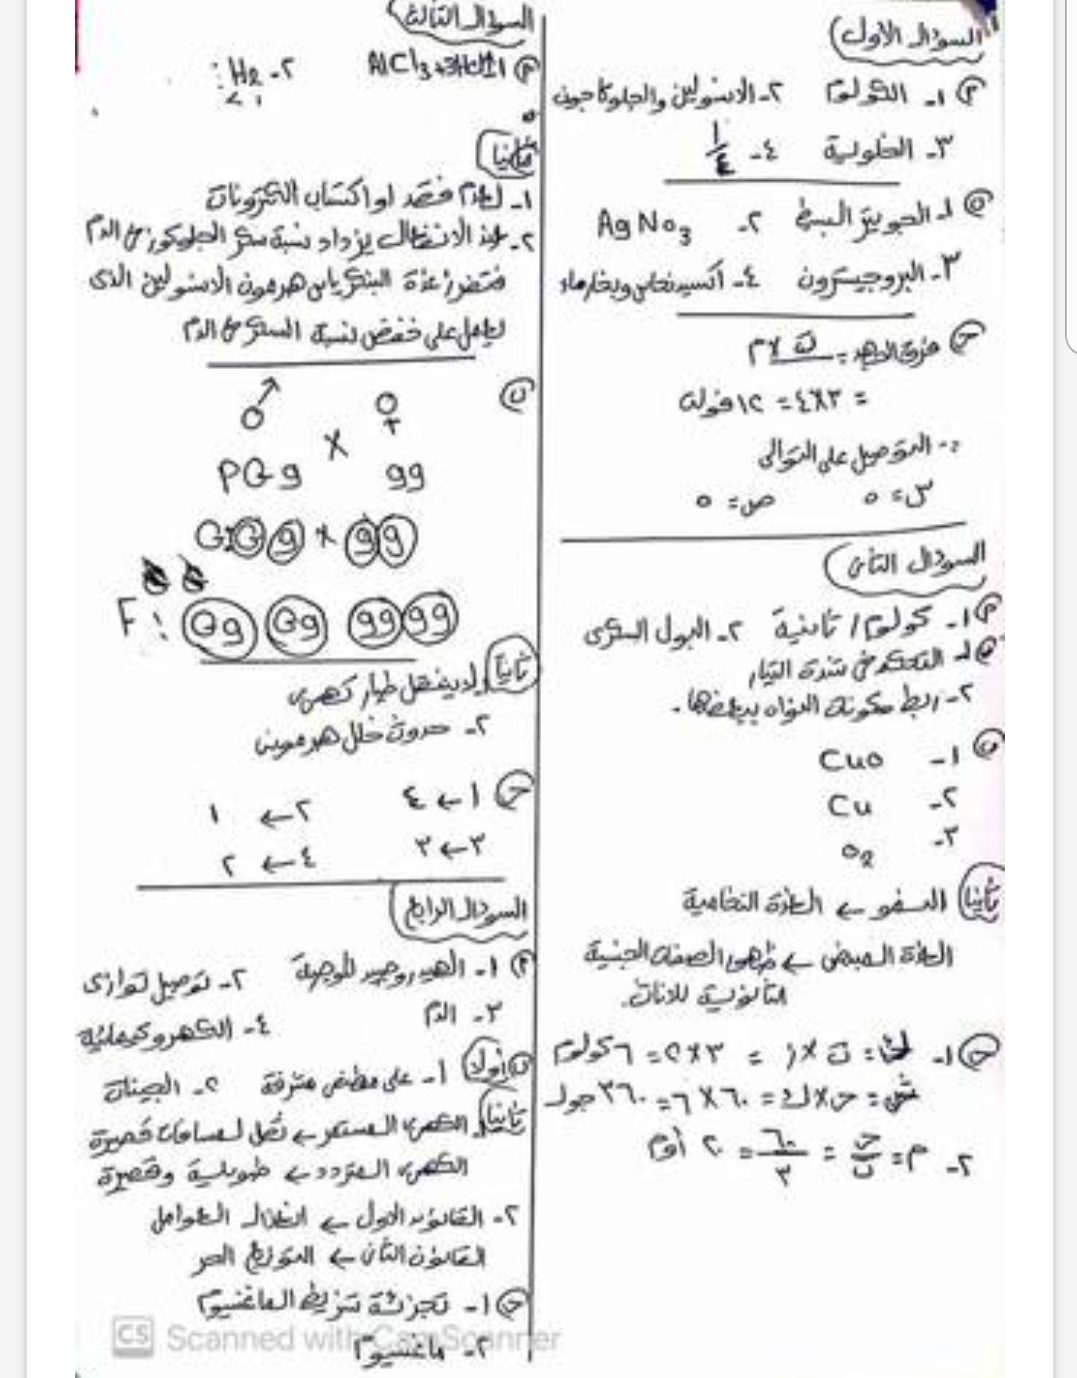 السؤال الأول
أ ١- الكولوم ٢- الانسولين والجلوكاجون
٣- الخلوية ٤- ١/٤
ب ١- الجويتر البسيط ٢- AgNo3
٣- البروجيسترون ٤- أكسيد نحاس وبخار ماء
ج فرق الجهد = ت × م
= ٣×٤ = ١٢ فولت
٢- التوصيل على التوالى
س = ٥ ص = ٥
السؤال الثانى
أ ١- كولوم / ثانية ٢- البول السكرى
١- التحكم فى شدة التيار
٢- ربط مكونات النواه ببعضها.
ب ١- CuO
٢- Cu
٣- O2
ثانيا النمو ← الغدة النخامية
الغدة المبيض ← ظهور الصفات الجنسية
الثانوية للاناث.
ج ١- ك = ت × ز = ٣×٢ = ٦ كولوم
ش = ج × ك = ٦٠ × ٦ = ٣٦٠ جول
٢- م = ج/ت = ٦٠/٣ = ٢٠ أوم
السؤال الثالث
أ ١- AlCl3+3H2O ٢- H2
ثانيا
١- لعدم فقد او اكتساب الكترونات
٢- عند الانفعال يزداد نسبة سكر الجلوكوز فى الدم
فتفرز غدة البنكرياس هرمون الانسولين الذى
يعمل على خفض نسبة السكر فى الدم
ب ♂ ♀
P Gg × gg
G g × g g
F: Gg Gg gg gg
ثانيا لا ينتقل تيار كهربى
٢- حدوث خلل هرمونى
ج ١ ← ٤ ٢ ← ١
٣ ← ٣ ٤ ← ٢
السؤال الرابع
أ ١- الهيدروجين الموجبة ٢- توصيل توازى
٣- الدم ٤- الكهروكيميائية
ب اولا ١- على هيئة متفرقة ٢- الجينات
ثانيا الكهربى المستمر ← تنقل لمسافات قصيرة
الكهربى المتردد ← طويلة وقصيرة
٢- القانون الاول ← انعزال العوامل
القانون الثانى ← التوزيع الحر
ج ١- تجربة شريط الماغنسيوم
٢- ماغنسيوم
CS Scanned with CamScanner